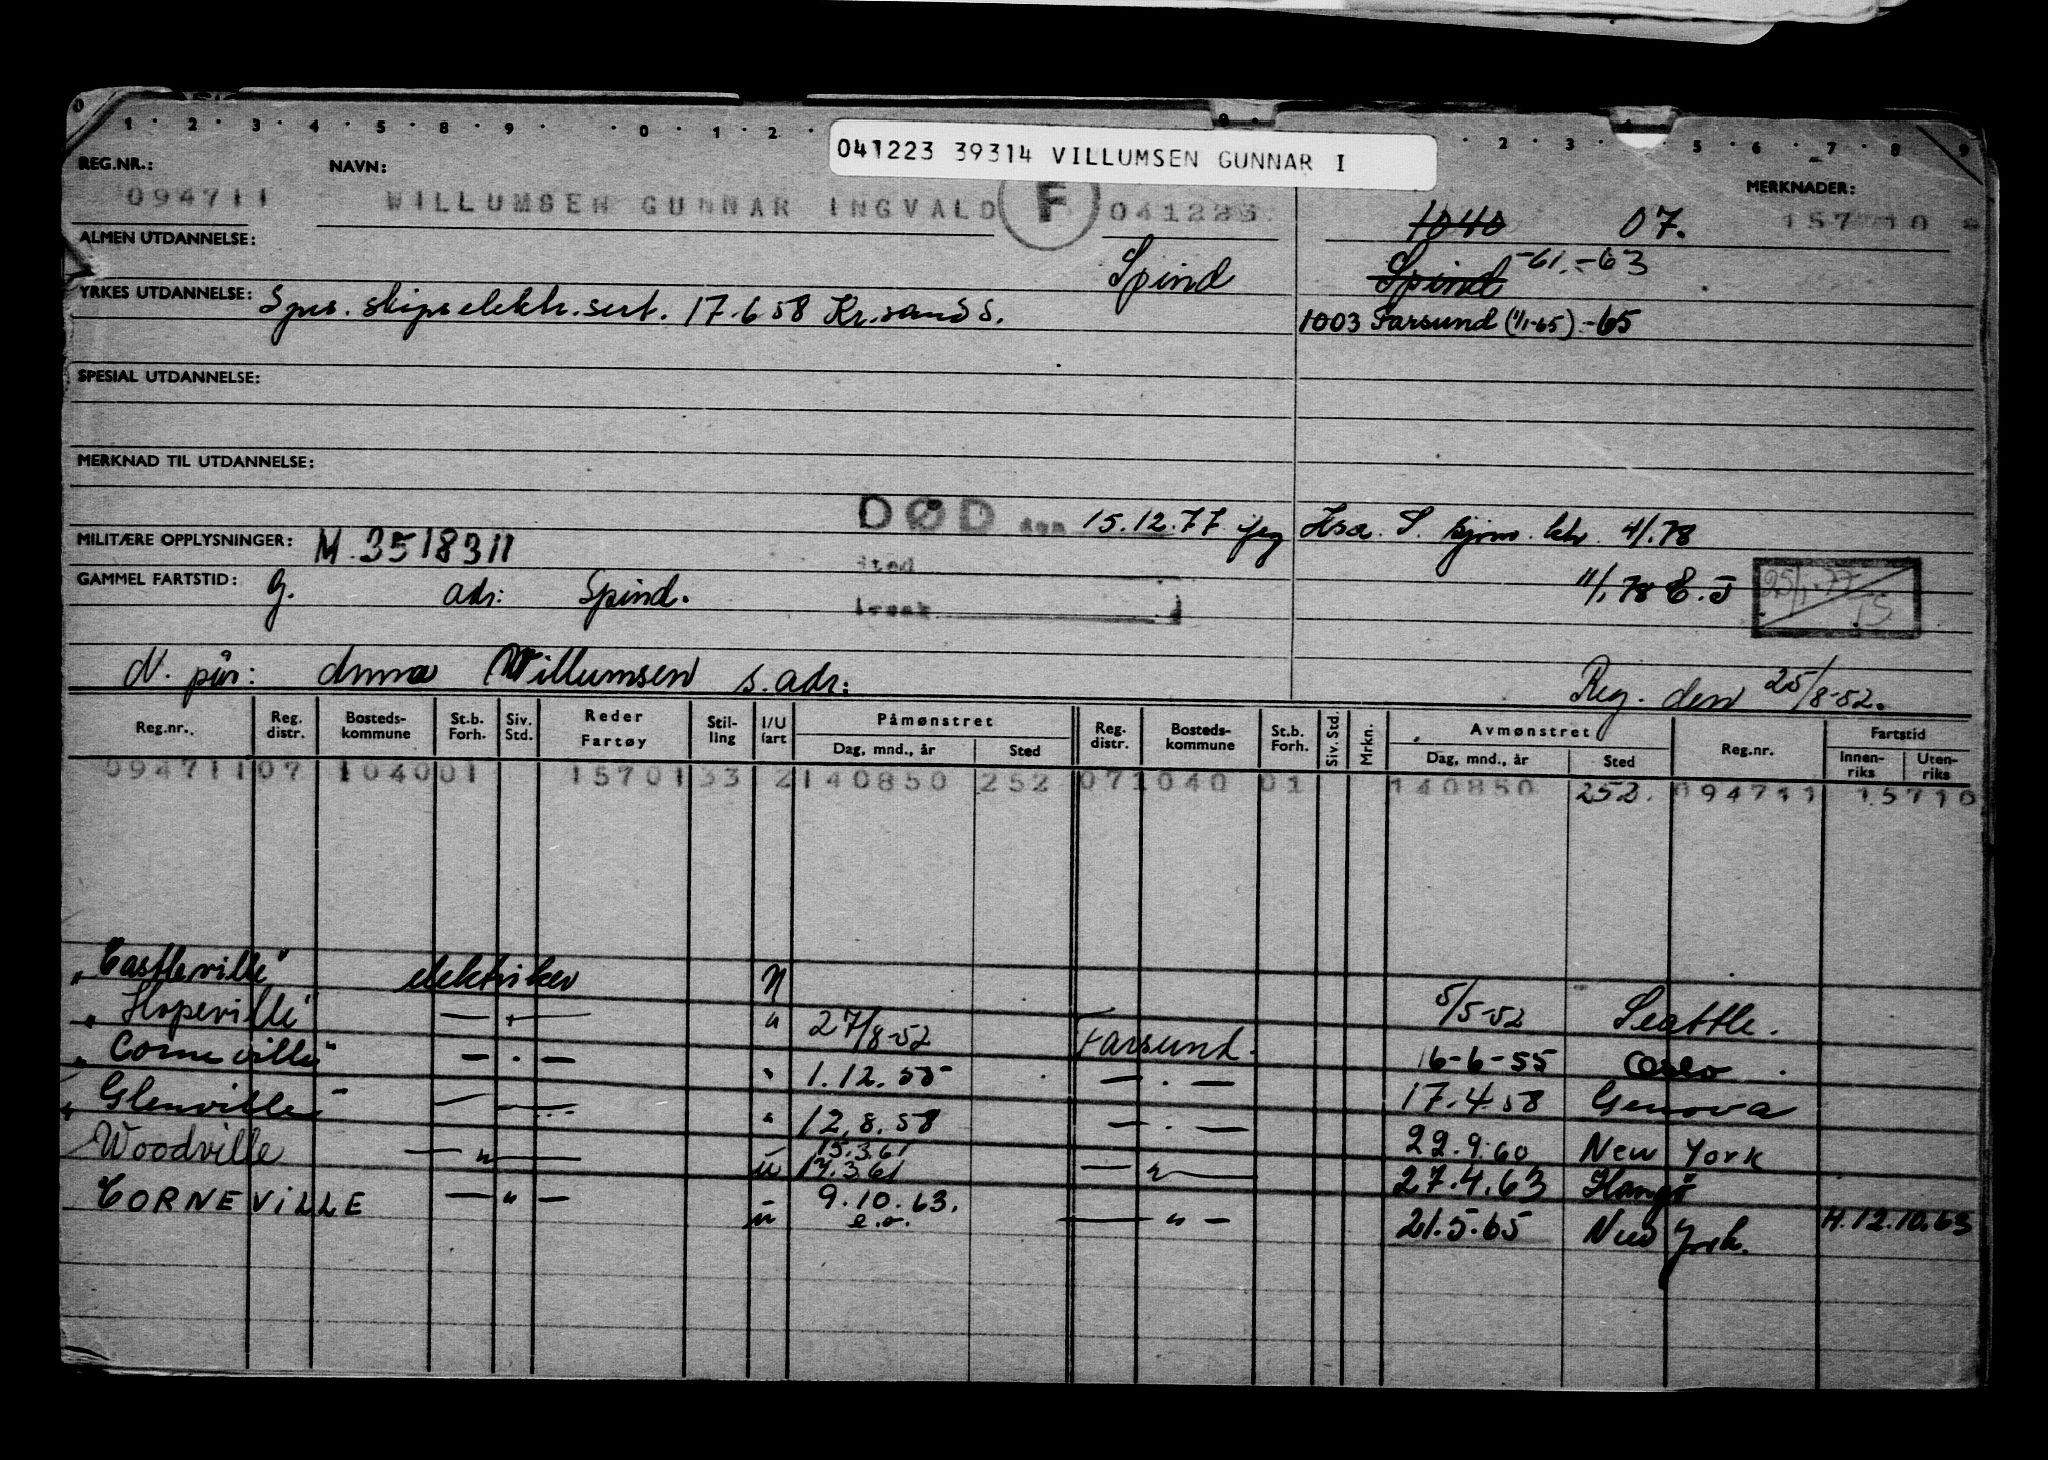 1 · 2 · 3 · 4 · 5 · 8 · 9 · · 0 · 1 · 2 · 2 · 3 · 4 · 5 · 6 · 7 · 8 · 9
041223 39314 VILLUMSEN GUNNAR I
REG.NR.: NAVN: MERKNADER:
094711 WILLUMSEN GUNNAR INGVALD F 041223 1040 07. 157710
ALMEN UTDANNELSE: Spind Spind -61.-63
YRKES UTDANNELSE: Spes. skipselektr.sert. 17-6 58 Kr.sand S. 1003 Farsund (1/1-65) -65
SPESIAL UTDANNELSE:
MERKNAD TIL UTDANNELSE:
DØD den 15.12.77 jfg Hsa. S. kjm. ktr. 4/1.78
MILITÆRE OPPLYSNINGER: M. 3518311
sted
GAMMEL FARTSTID: G. adr: Spind. 11/1 78 E.J 25/1-77
årsak
N. pår: Anna Willumsen s. adr: Reg. den 25/8-52.
Reg.nr. Reg. distr. Bosteds-kommune St.b. Forh. Siv. Std. Reder Fartøy Stil-ling I/U fart Påmønstret Dag, mnd., år Sted Reg. distr. Bosteds-kommune St.b. Forh. Siv. Std. Mrkn. Avmønstret Dag, mnd., år Sted Reg.nr. Fartstid Innen-riks Uten-riks
094711 07 1040 01 15701 33 2 140850 252 07 1040 01 140850 252. 094711 15710
"Castleville" elektriker 5/5-52 Seattle.
"Hopeville" — . — " 27/8-52 Farsund. 16-6-55 Oslo
"Corneville" — . — " 1.12.55 — . — 17.4.58 Genova
"Glenville" — . — " 12.8.58 — . — 22.9.60 New York
15.3.61
Woodville — " — u 17.3.61 — " — 27.4.63 Hangö
CORNEVILLE — " — u 9.10.63. e.o. — " — 21.5.65 New York. H.12.10.63